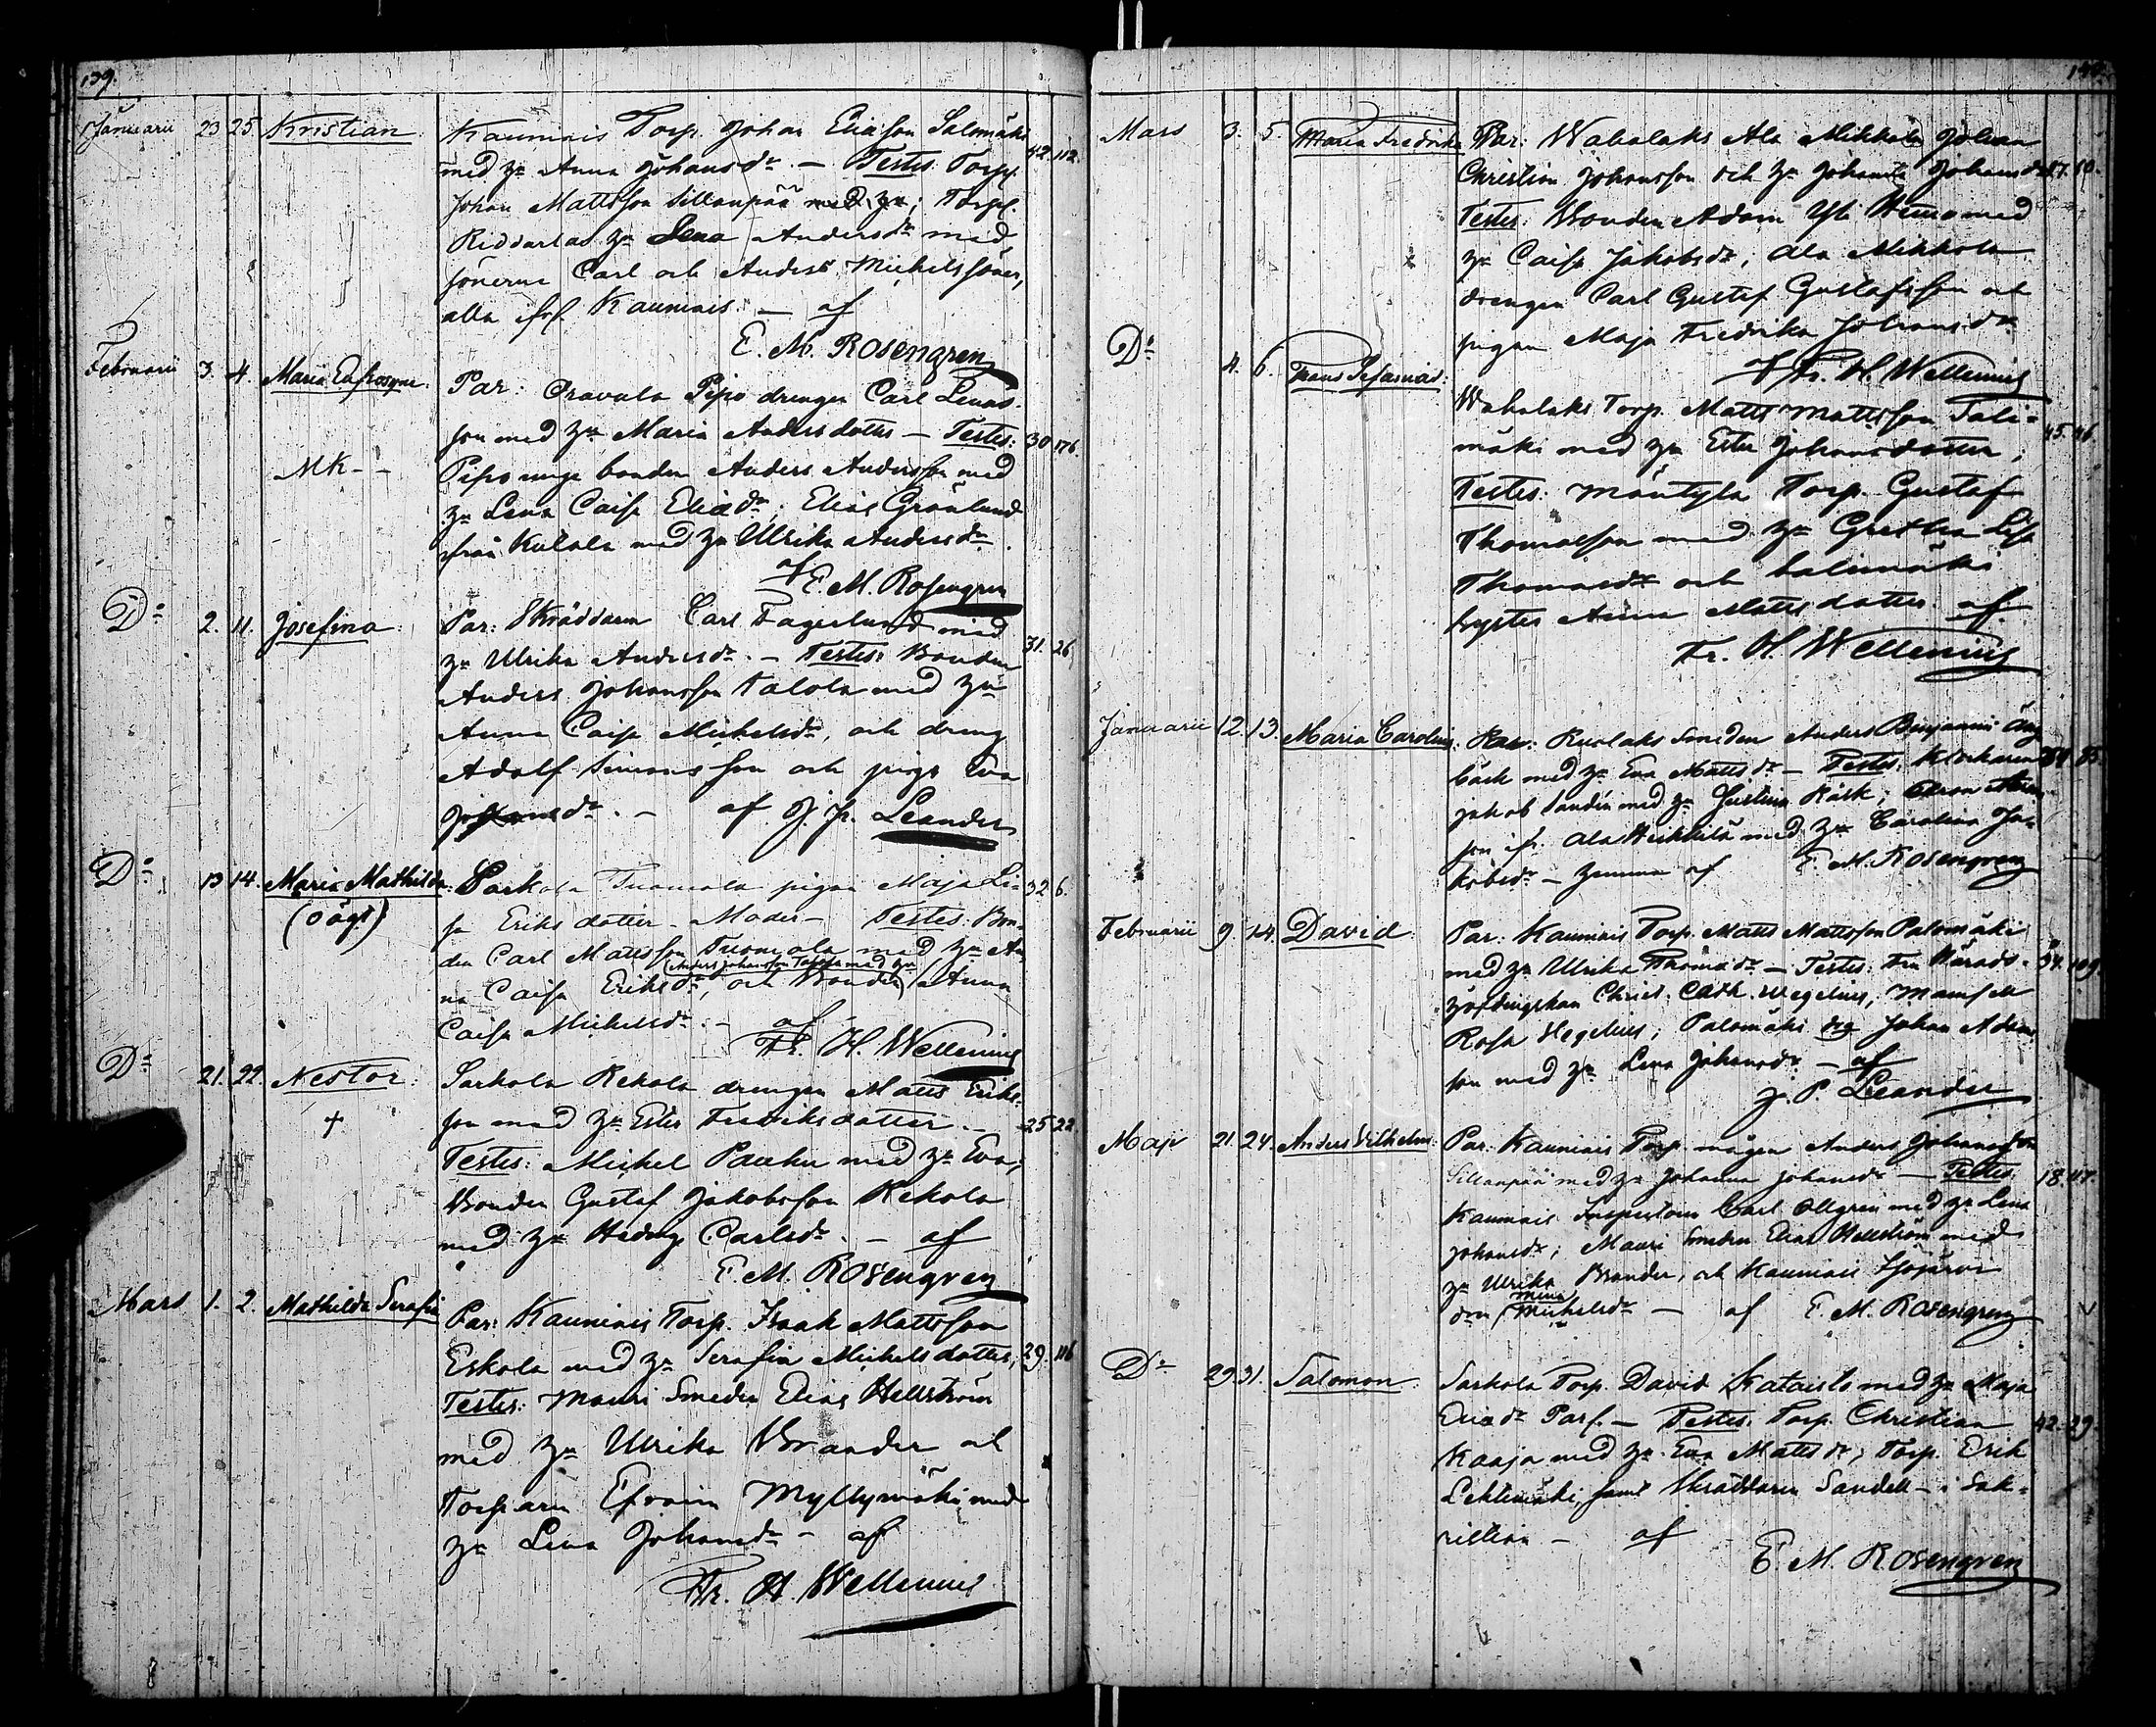 139.
Januarii 23 25. Kristian. Kauniais Torp. Johan Eliasson Salomäki
med h:u Anna Johansd:r. — Testes: Torp. 42. 112.
Johan Mattsson Sillanpää med h:u; Torp.
Riddarla h:u Lena Andersd:r med
sönerne Carl och Anders Michelssöner,
alla ifr. Kauniais. — af
E. M. Rosengren
Februarii 3. 4. Maria Eufrosyne. Par: Oravala Pipo drengen Carl Lenas-
son med h:u Maria Andersdotter — Testes: 30 176.
MK — Pipo unge bonden Anders Andersson med
h:u Lena Caisa Eliæd:r; Elias Grönlund
från Kulola med h:u Ulrika Andersd:r.
af E. M. Rosengren
D:o 2. 11. Josefina. Par: Skräddaren Carl Fagerlund med
h:u Ulrika Andersd:r. — Testes: Bonden 31. 26
Anders Johansson Talola med h:u
Anna Caisa Michelsd:r, och dreng
Adolf Simonsson och piga Eva
Johansd:r. — af J. P. Leander
D:o 13 14. Maria Mathilda. Sarkola Tuomola pigan Maja Li- 32 6.
(oägt) sa Eriksdotter — Moder — Testes: Bon-
den Carl Mattsson Tuomola med h:u An-
Anders Johansson Talola med h:u
na Caisa Eriksd:r, och Bonden Anna
Caisa Michelsd:r. — af
Fr. H. Wellenius
D:o 21. 22. Nestor. Sarkola Rekola drengen Matts Eriks-
† son med h:u Ester Fredriksdotter. — 25 22.
Testes: Michel Pauhu med h:u Eva;
Bonden Gustaf Jakobsson Rekola
med h:u Hedvig Carlsd:r. — af
E. M. Rosengren
Mars 1. 2. Mathilda Serafia Par: Kauniais Torp. Isaak Mattsson
Eskola med h:u Serafia Michelsdotter; 29. 116
Testes: Mauri Smeden Elias Hellström
med h:u Ulrika Brander och
Torparen Efraim Myllymäki med
h:u Lena Johansd:r — af
Fr. H. Wellenius
Mars 3. 5. Maria Fredrika Par: Wahalaks Ala Mikkola Johan
Christian Johansson och h:u Johanna Johansd:r 27. 60.
Testes: Bonden Adam Yli Hemo med
h:u Caisa Jakobsd:r; Ala Mikkola
drengen Carl Gustaf Gustafsson och
pigan Maja Fredrika Johansd:r
af Fr. H. Wellenius
D:o 4. 6. Frans Wahalaks Torp. Matts Mattsson Tali-
mäki med h:u Ester Johansdotter; 45. 46.
Testes: Mäntylä Torp. Gustaf
Thomasson med h:u Gretha Lisa
Thomasd:r och Talimäki
hystes Anna Mattsdotter. af
Fr. H. Wellenius
Januarii 12. 13. Maria Carolina. Par: Ruolaks Smeden Anders Benjamin Äng
bäck med h:u Eva Mattsd:r — Testes: Klockaren 34 85.
Jakob Sandén med h:u Justina Rask;
son ifr. Ala Heikkilä med h:u Carolina Ja-
kobsd:r — hemma af E. M. Rosengren
Februarii 9. 14. David. Par: Kauniais Torp. Matts Mattsson Palomäki
med h:u Ulrika Thomæd:r — Testes: Fru Härads- 34. 109.
höfdingskan Christ. Cath. Wegelius; Mamsell
Rosa Wegelius; Palomäki drg Johan Adams-
son med h:u Lena Johansd:r — af
J. P. Leander
Maji 21. 24. Anders Wilhelm. Par. Kauniais Torp. mågen Anders Johansson
Sillanpää med h:u Johanna Johansd:r — Testes: 18. 47.
Kauniais Inspectoren Carl Ollgren med h:u Lena
Johansd:r; Mauri Smeden Elias Hellström med
h:u Ulrika Brander, och Kauniais
Mina
Michelsd:r — af E. M. Rosengren
D:o 29. 31. Salomon. Sarkola Torp. David Kataisto med h:u Maja
Eliæd:r Par. — Testes: Torp. Christian 42. 29.
Kaaja med h:u Eva Mattsd:r; Torp. Erik
Lehtimäki, samt Skräddaren Sandell — i Sak-
ristian — af
E. M. Rosengren